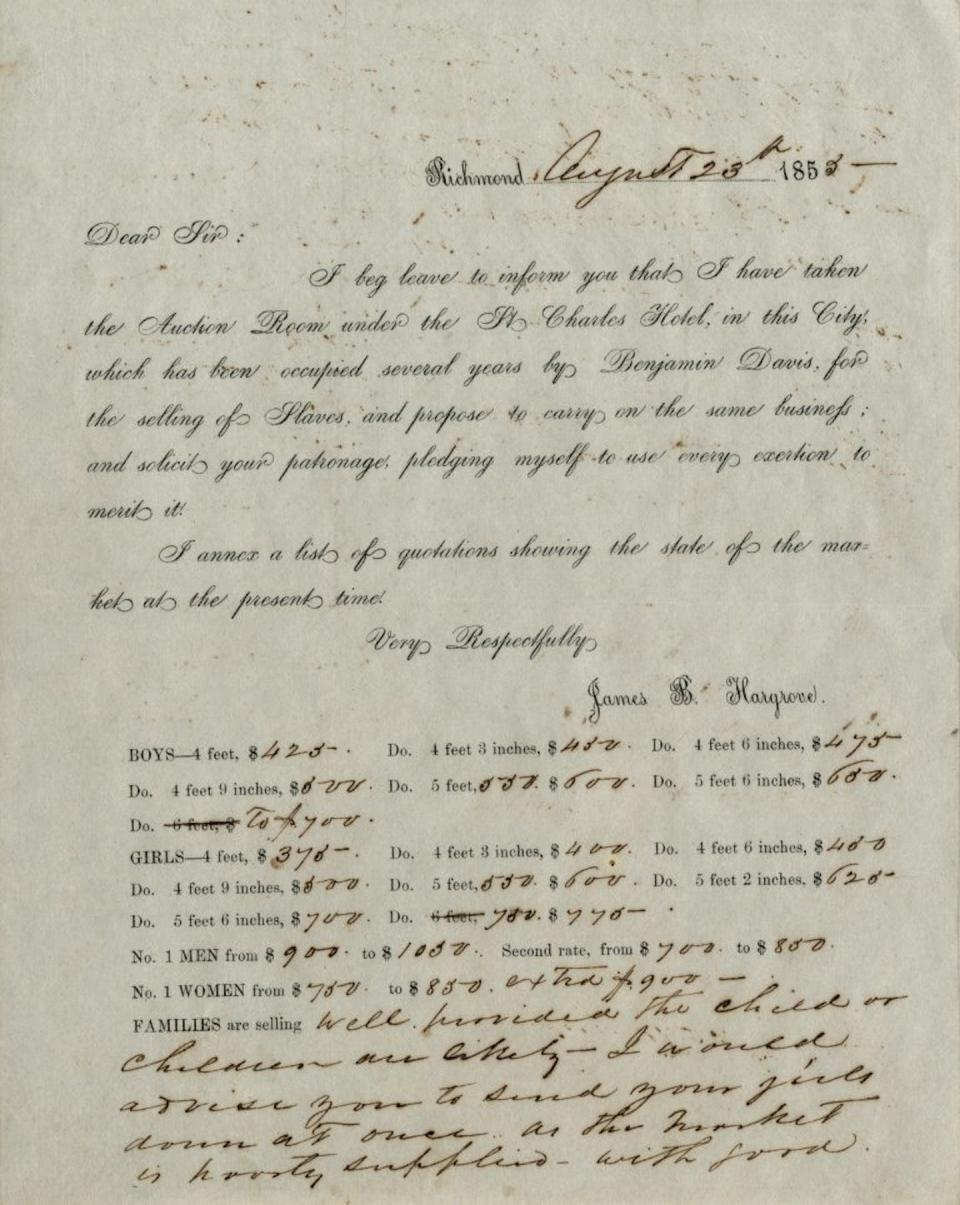 Richmond, August 23th 1853 —
Dear Sir:
I beg leave to inform you that I have taken
the Auction Room under the St Charles Hotel, in this City,
which has been occupied several years by Benjamin Davis, for
the selling of Slaves, and propose to carry on the same business;
and solicit your patronage, pledging myself to use every exertion to
merit it.
I annex a list of quotations showing the state of the mar=
ket at the present time.
Very Respectfully
James B. Hargrove.
BOYS—4 feet, $425 . Do. 4 feet 3 inches, $450. Do. 4 feet 6 inches, $475
Do. 4 feet 9 inches, $500. Do. 5 feet, 550. $600. Do. 5 feet 6 inches, $650.
Do. 6 feet, $ To $700.
GIRLS—4 feet, $375. Do. 4 feet 3 inches, $400. Do. 4 feet 6 inches, $450
Do. 4 feet 9 inches, $500. Do. 5 feet, 550. $600. Do. 5 feet 2 inches, $625
Do. 5 feet 6 inches, $700. Do. 6 feet, 750. $775 .
No. 1 MEN from $900. to $1050. Second rate, from $700. to $850.
No. 1 WOMEN from $750. to $850. extra $900 —
FAMILIES are selling well. provided the child or
children are likely — I would
advise you to send your girls
down at once. as the market
is poorly supplied — with good.